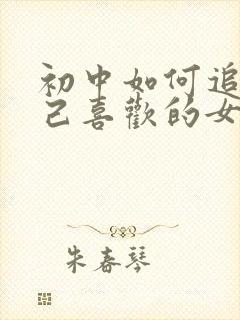 初中如何追
己喜歡的女
朱春琴